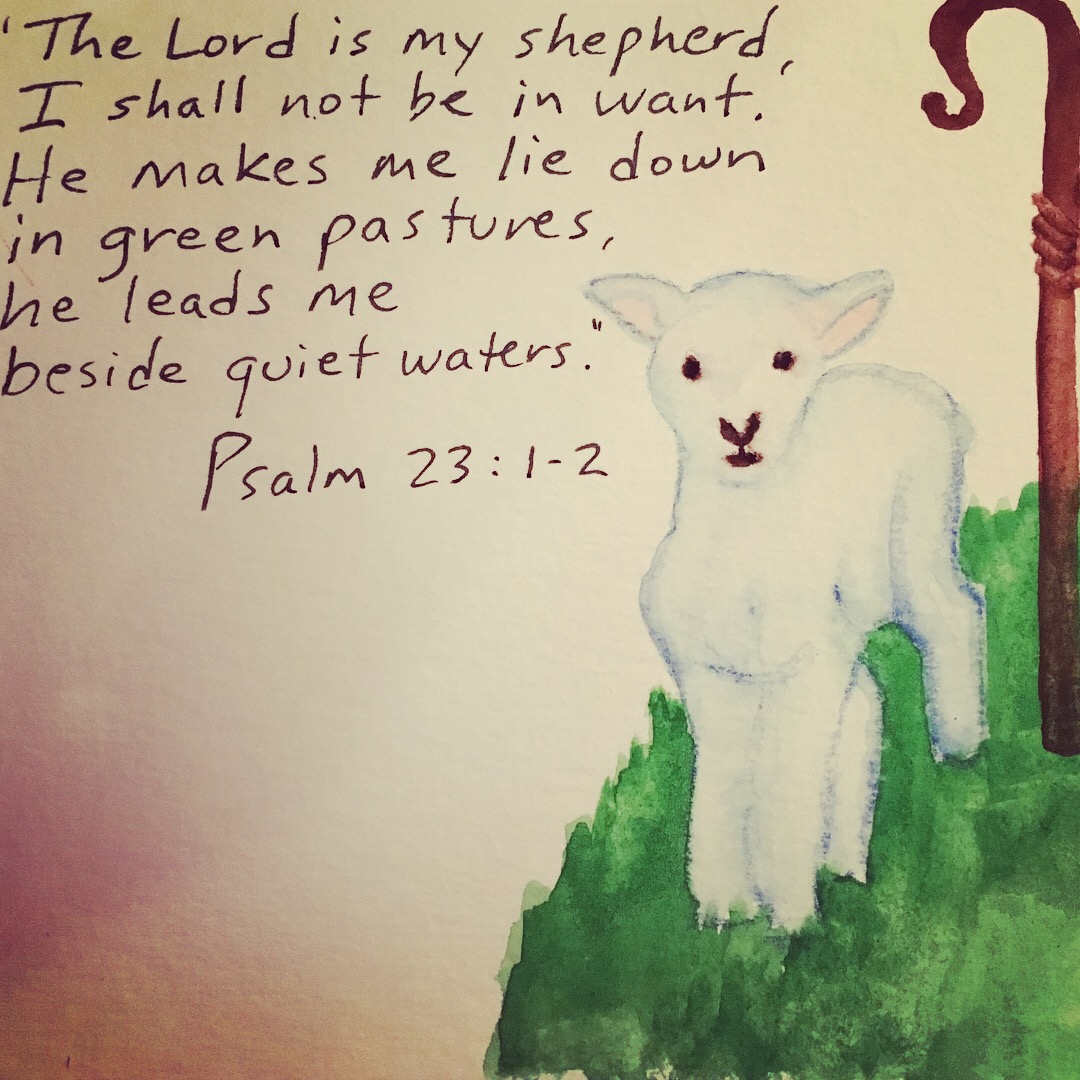 "The Lord is my shepherd,
I shall not be in want.
He makes me lie down
in green pastures,
he leads me
beside quiet waters."
Psalm 23:1-2